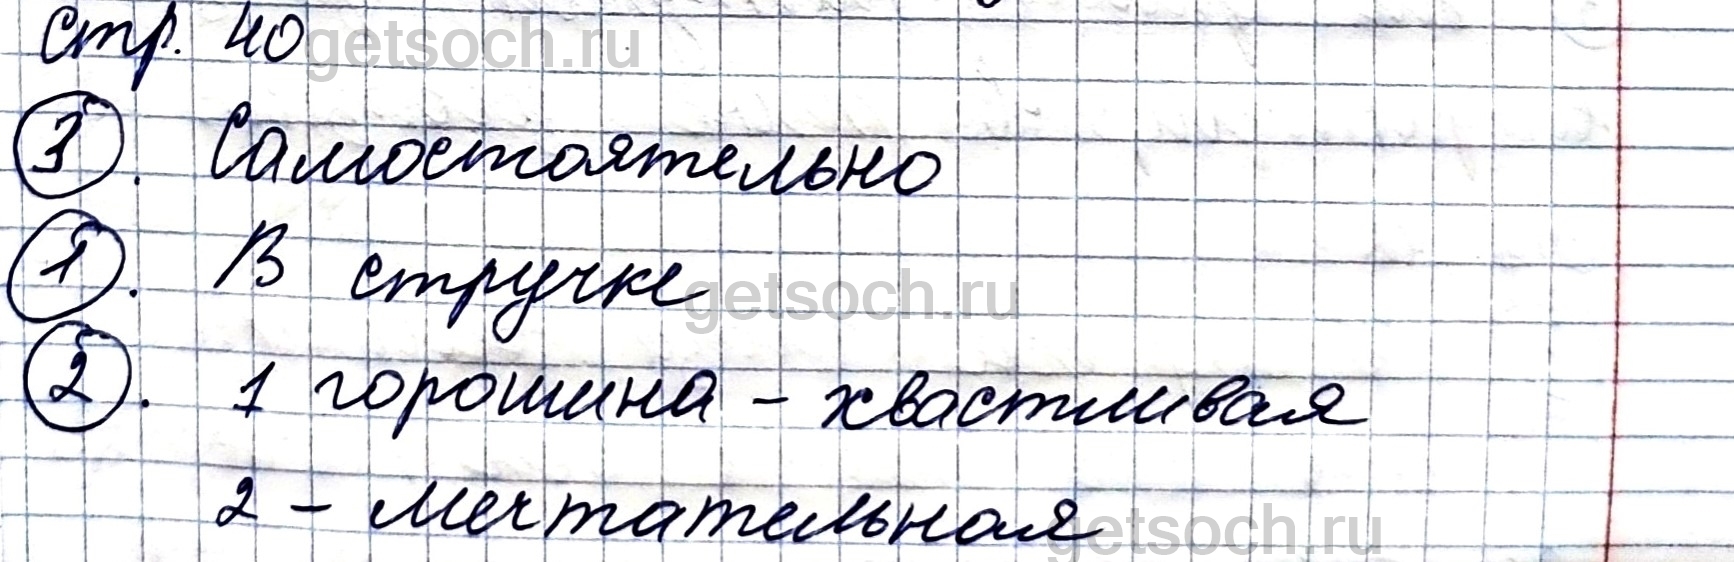 стр. 40 getsoch.ru
3. Самостоятельно
1. В стручке getsoch.ru
2. 1 горошина - хвастливая
2 - мечтательная getsoch.ru